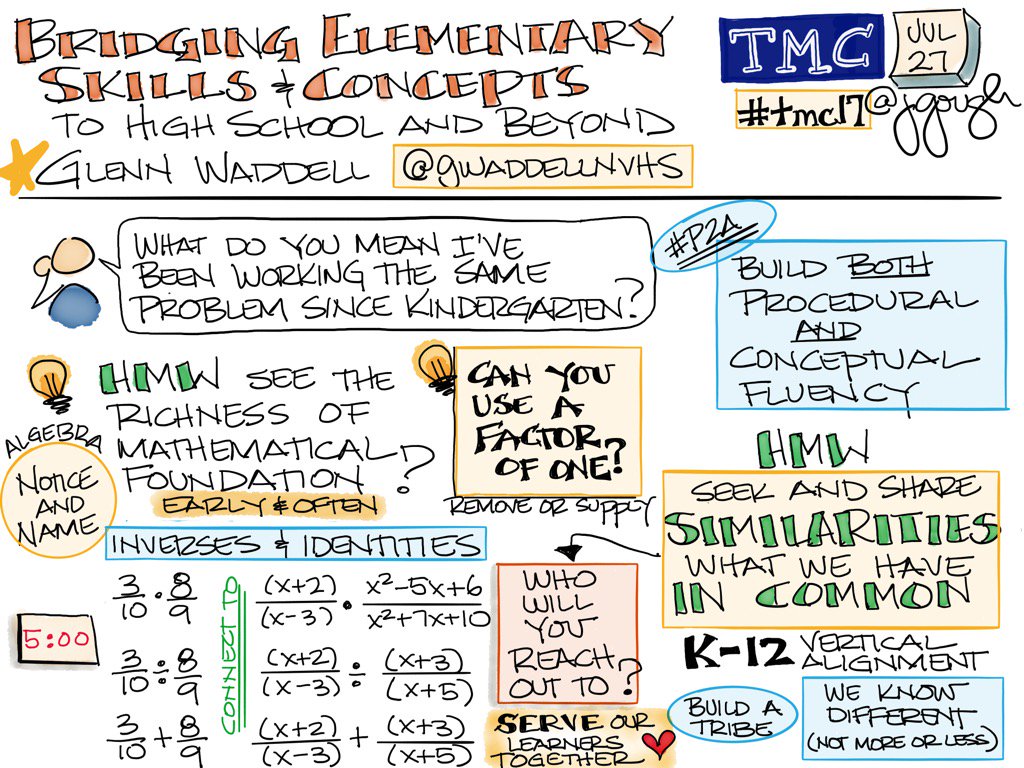 BRIDGING ELEMENTARY
SKILLS & CONCEPTS
TO HIGH SCHOOL AND BEYOND
GLENN WADDELL @gwaddellnvhs
TMC
JUL
27
#tmc17
@jgough
WHAT DO YOU MEAN I'VE
BEEN WORKING THE SAME
PROBLEM SINCE KINDERGARTEN?
#P2A
BUILD BOTH
PROCEDURAL
AND
CONCEPTUAL
FLUENCY
HMW SEE THE
RICHNESS OF
MATHEMATICAL
FOUNDATION?
EARLY & OFTEN
CAN YOU
USE A
FACTOR
OF ONE?
REMOVE OR SUPPLY
ALGEBRA
NOTICE
AND
NAME
HMW
SEEK AND SHARE
SIMILARITIES
WHAT WE HAVE
IN COMMON
INVERSES & IDENTITIES
5:00
3/10 · 8/9
3/10 ÷ 8/9
3/10 + 8/9
CONNECT TO
(x+2)/(x-3) · x²-5x+6/x²+7x+10
(x+2)/(x-3) ÷ (x+3)/(x+5)
(x+2)/(x-3) + (x+3)/(x+5)
WHO
WILL
YOU
REACH
OUT TO?
SERVE OUR
LEARNERS
TOGETHER
K-12 VERTICAL
ALIGNMENT
BUILD A
TRIBE
WE KNOW
DIFFERENT
(NOT MORE OR LESS)